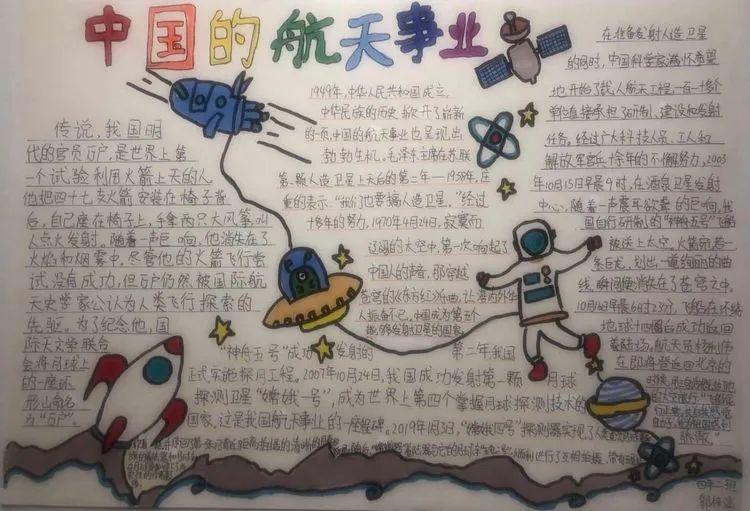 中国的航天事业
传说，我国明
代的官员万户，是世界上第
一个试验利用火箭上天的人
他把四十七支火箭安装在椅子背
后，自己座在椅子上，手拿两只大风筝，叫
人点火发射。随着一声巨响，他消失在了
火焰和烟雾中，尽管他的火箭飞行尝
试没有成功，但万户仍然被国际航
天史学家公认为人类飞行探索的
先驱。为了纪念他，国
际天文学联合
会将月球上
的一座环
形山命名
为“万户”。
1949年，中华人民共和国成立，
中华民族的历史掀开了崭新
的一页，中国的航天事业也呈现出
勃勃生机，毛泽东主席在苏联
第一颗人造卫星上天后的第二年——1958年，庄
重的表示：“我们也要搞人造卫星。”经过
十多年的努力，1970年4月24日，寂寞而
辽阔的太空中，第一次响起了
中国人的声音，那穿越
苍穹的《东方红》乐曲，让海内外华
人振奋不已，中国成为第五个
能够发射卫星的国家。
在准备发射人造卫星
的同时，中国科学家满怀希望
地开始了载人航天工程，一百一十多个
单位直接承担了研制、建设和发射
任务。经过广大科技人员、工人和
解放军官兵十余年的不懈努力，2003
年10月15日早晨9时，在酒泉卫星发射
中心，随着一声震耳欲聋的巨响，我
国自行研制的“神舟五号”飞船
被送上太空，火箭宛若一
条巨龙，划出一道绚丽的曲
线，瞬间便消失在了苍穹之中。
10月16日早晨6时23分，飞船在环绕
地球十四圈后成功返回
着陆场，航天员杨利伟
“神舟五号”成功发射的
第二年，我国
正式实施探月工程。2007年10月24日，我国成功发射第一颗
月球
探测卫星“嫦娥一号”，成为世界上第四个掌握月球探测技术的
国家，这是我国航天事业的一座里程碑。2019年1月3日，“嫦娥四号”探测器实现了人类
四年二班